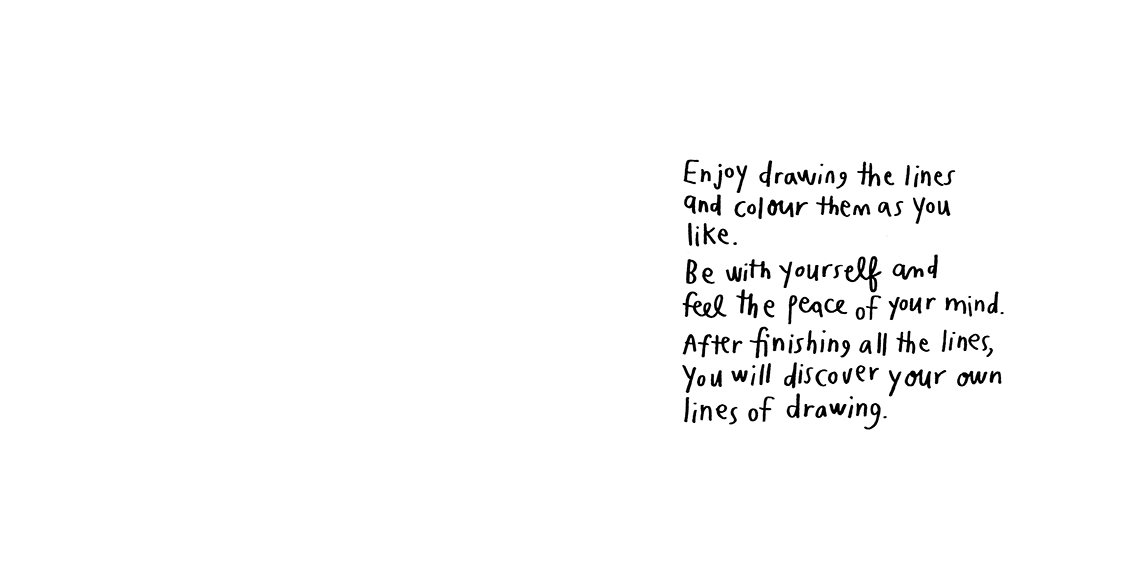 Enjoy drawing the lines
and colour them as you
like.
Be with yourself and
feel the peace of your mind.
After finishing all the lines,
you will discover your own
lines of drawing.